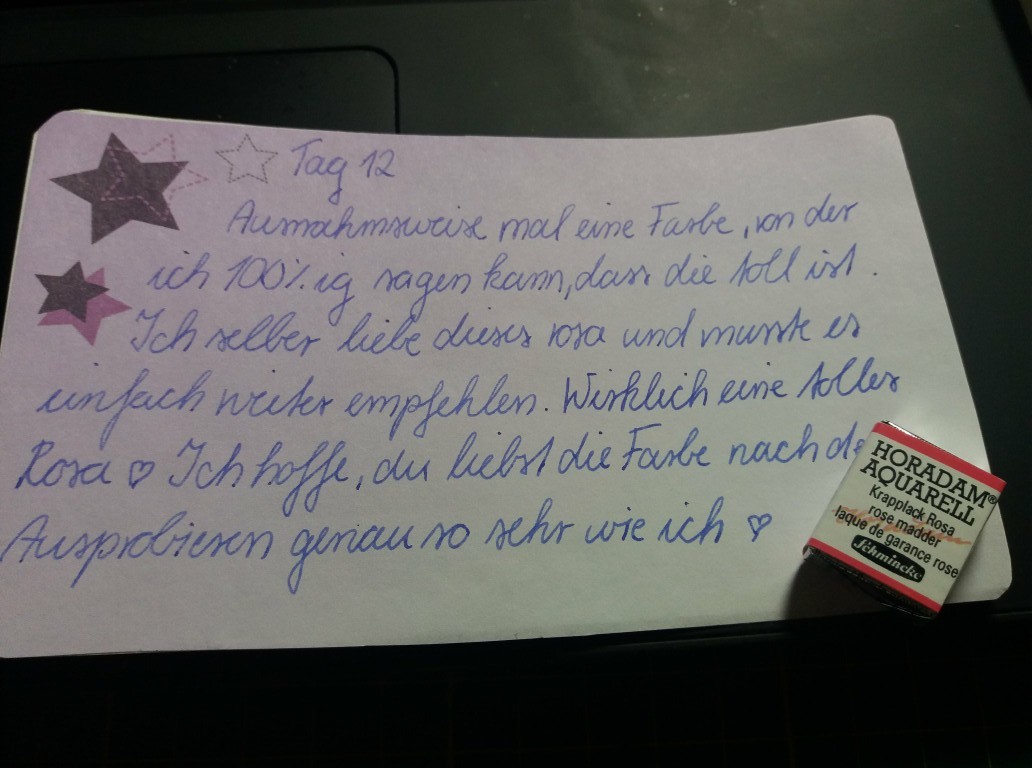 Tag 12
Ausnahmsweise mal eine Farbe, von der
ich 100%ig sagen kann, dass die toll ist.
Ich selber liebe dieses rosa und musste es
einfach weiter empfehlen. Wirklich eine tolles
Rosa ♡ Ich hoffe, du liebst die Farbe nach de
Ausprobieren genau so sehr wie ich ♡
HORADAM®
AQUARELL
Krapplack Rosa
rose madder
laque de garance rose
Schmincke